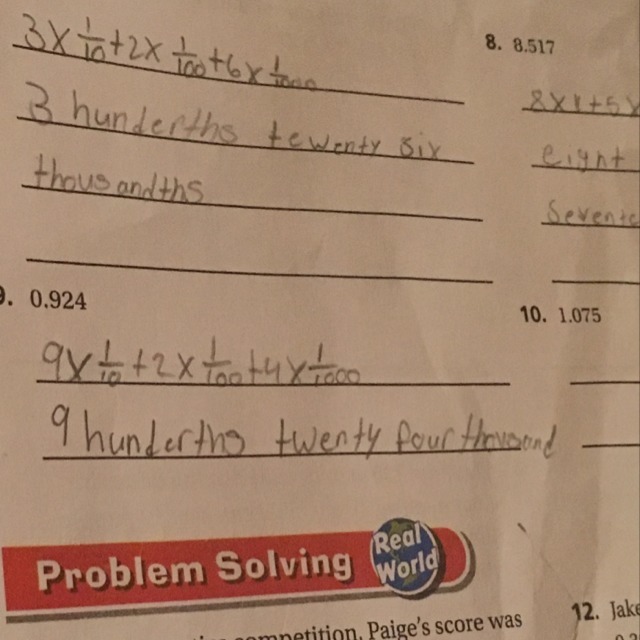 3 x 1/10 + 2 x 1/100 + 6 x 1/1000
3 hunderths tewenty six
thousandths
8. 8.517
8x1+5x
eight
9. 0.924
9 x 1/10 + 2 x 1/100 + 4 x 1/1000
9 hunderths twenty four thousand
10. 1.075
Problem Solving Real World
competition, Paige's score was
12. Jake